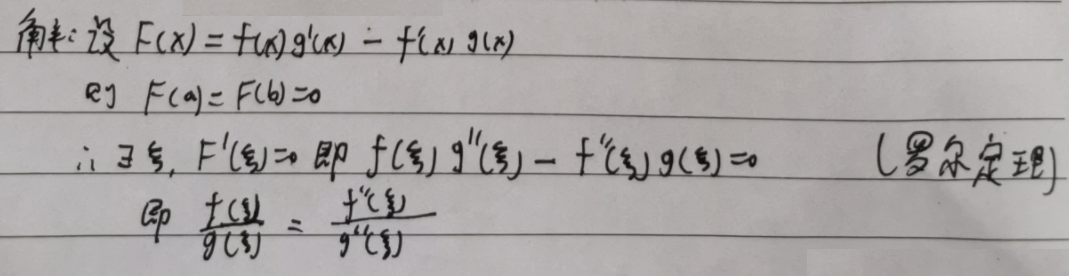 解:设 F(x) = f(x)g'(x) - f'(x)g(x)
则 F(a) = F(b) = 0
∴ ∃ ξ, F'(ξ)=0 即 f(ξ)g''(ξ) - f''(ξ)g(ξ)=0 (罗尔定理)
即 f(ξ)/g(ξ) = f''(ξ)/g''(ξ)